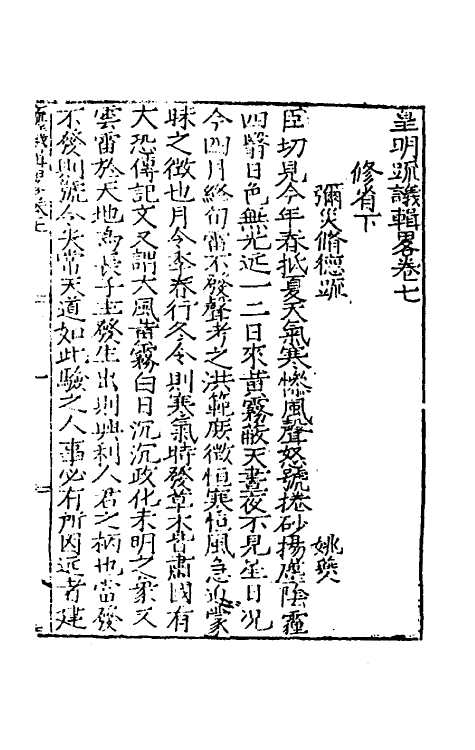 皇明疏議輯畧卷七
修省下
彌災脩德疏
姚夔
臣切見今年春抵夏天氣寒慘風聲怒號捲砂揚塵陰霾
四翳日色無光近一二日來黄霧蔽天晝夜不見星日况
今四月終旬雷不發聲考之洪範庶徵恒寒恒風急迫蒙
昧之徵也月令季春行冬令則寒氣時發草木皆肅國有
大恐傳記文又謂大風黄霧白日沉沉政化未明之象又
雲雷於天地為長子主發生出則興利人君之柄也當發
不發則號令失常天道如此驗之人事必有所因近者建